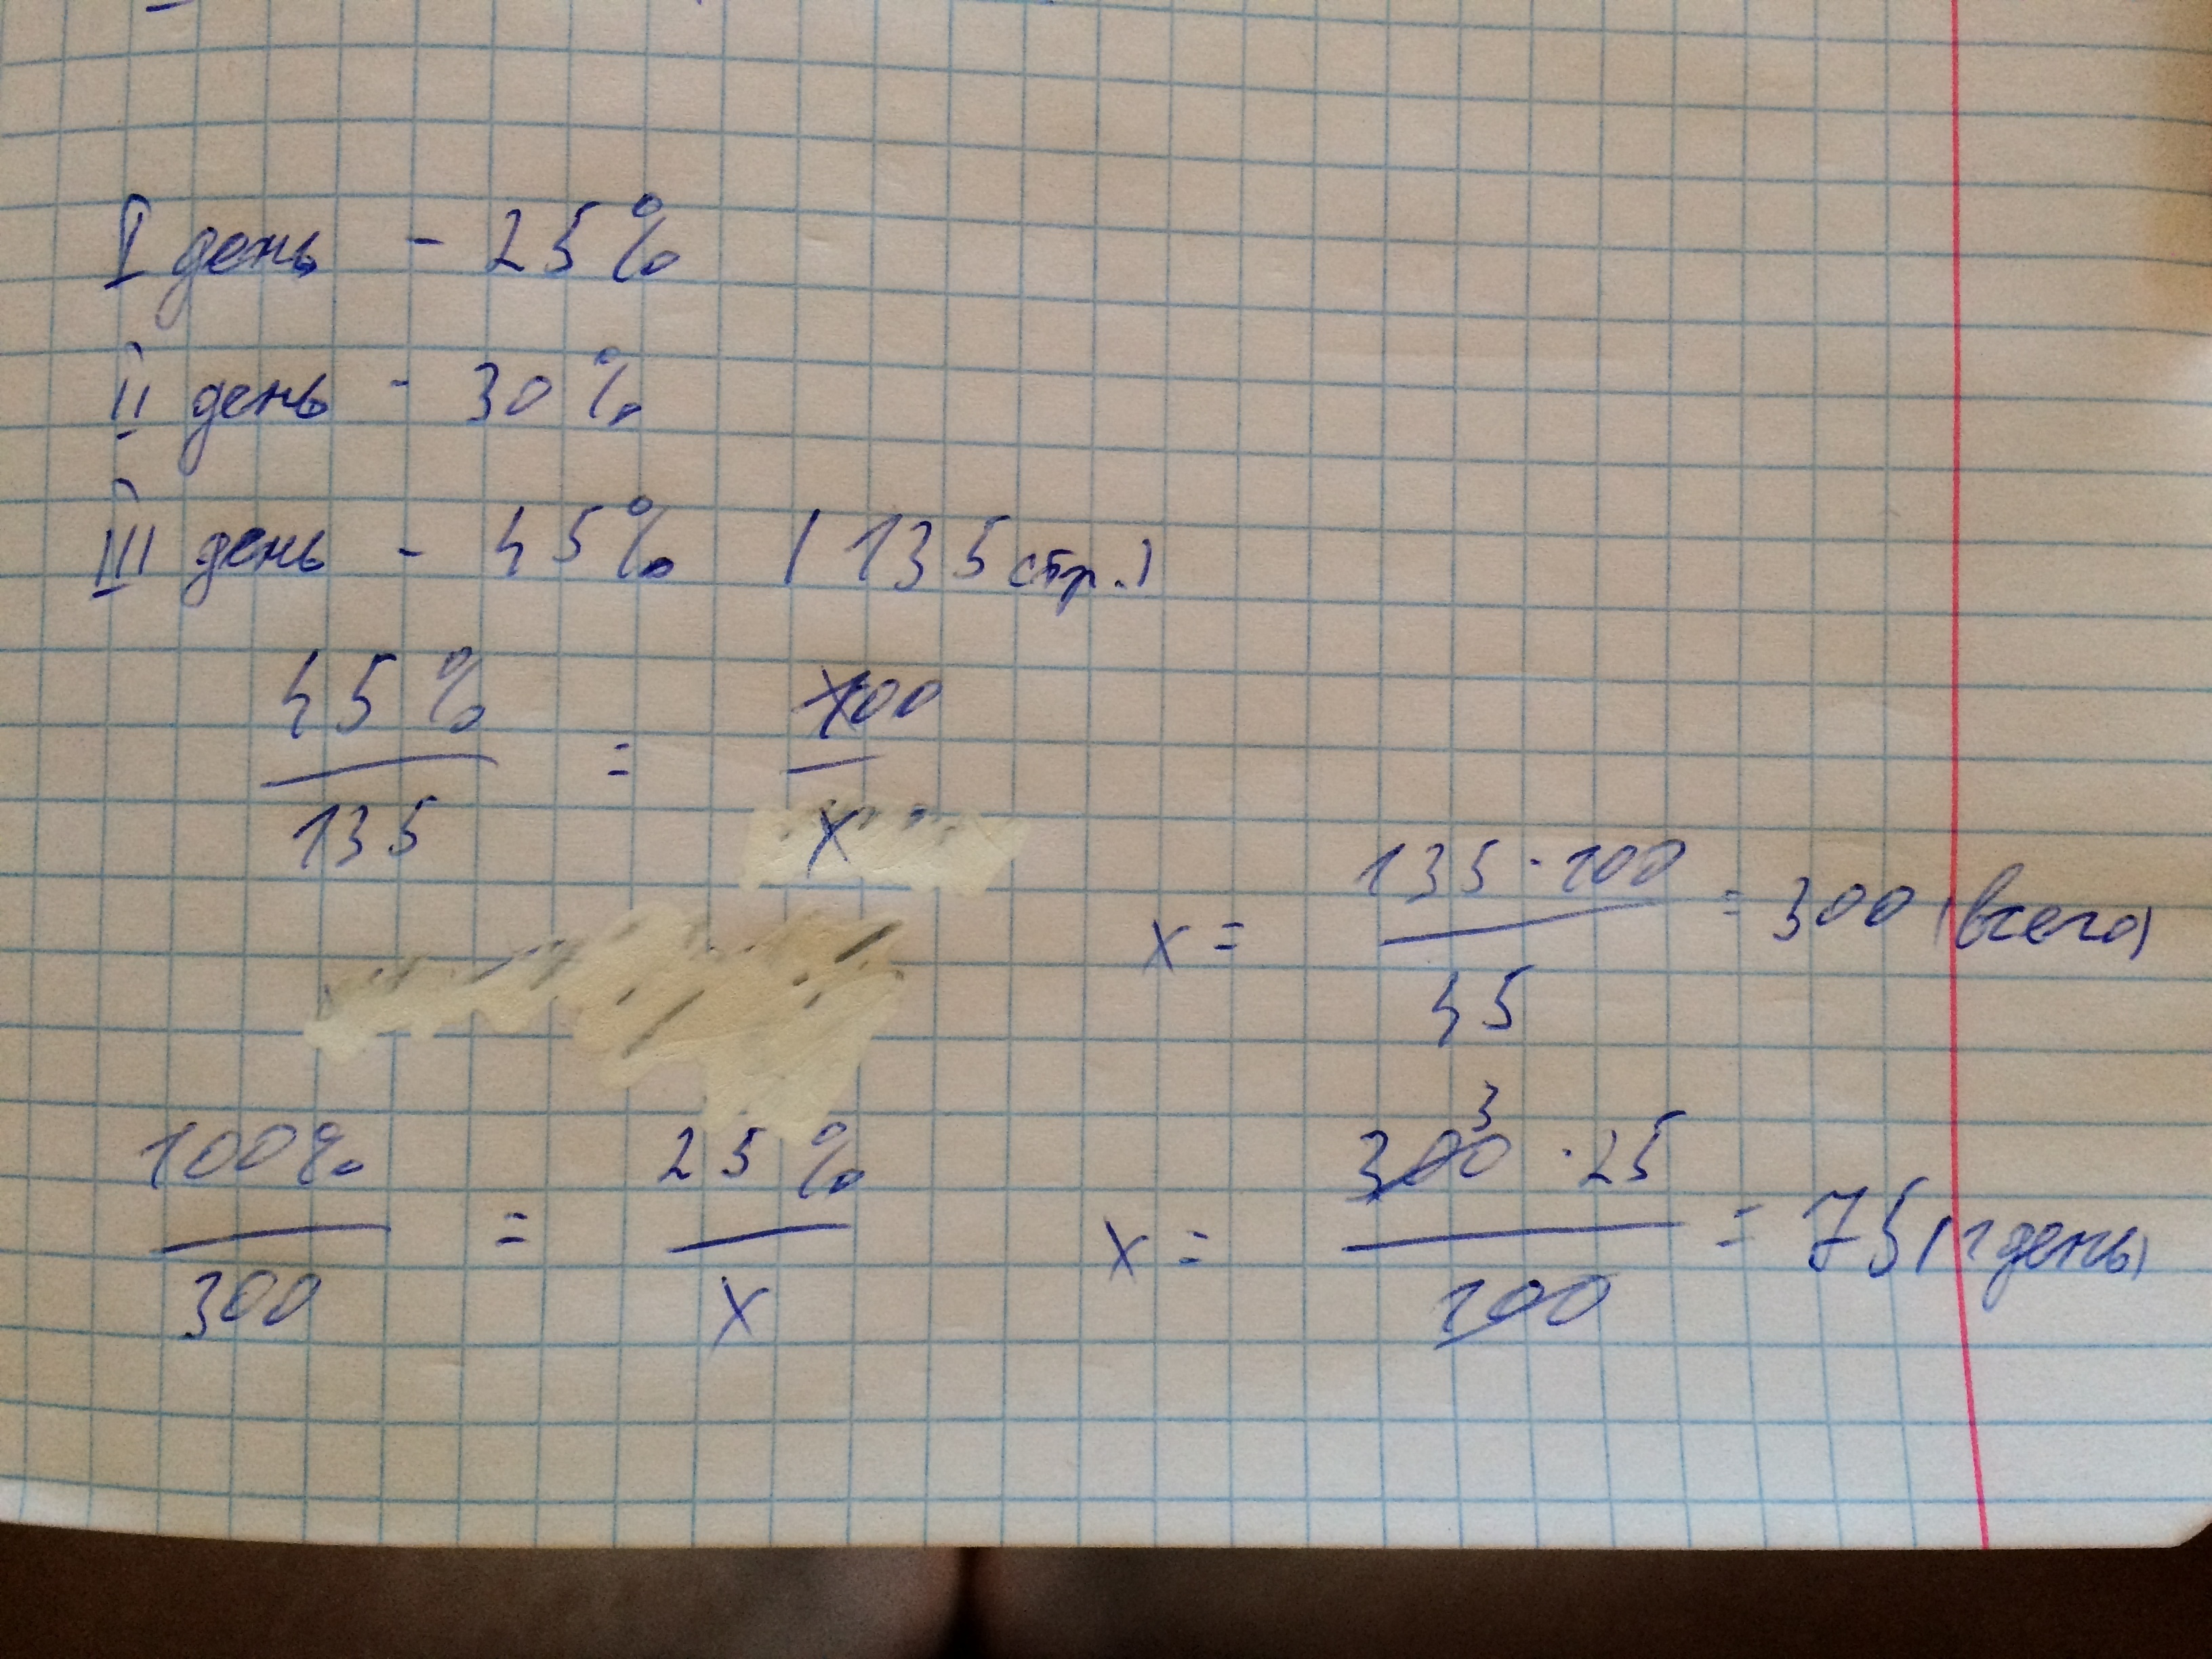 I день - 25%
II день - 30%
III день - 45% (135 стр.)
45% / 135 = 100 / x
x = 135 · 100 / 45 = 300 (всего)
100% / 300 = 25% / x
x = 300 3 · 25 / 100 = 75 (1 день)